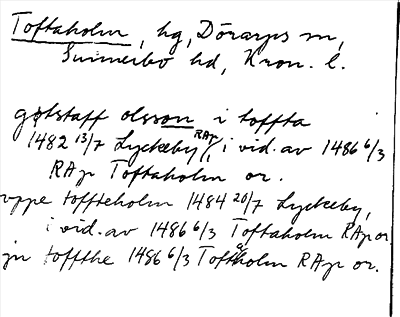 Toftaholm, hg, Dörarps sn,
Sunnerbo hd, Kron. l.
gøtstaff olsson i toffta
1482 13/7 Lyckeby RAp, i vid. av 1486 6/3
RAp Toftaholm or.
vppe toffteholm 1484 20/7 Lyckeby,
i vid. av 1486 6/3 Toftaholm RAp or
jn toffthe 1486 6/3 Toftaholm RAp or.